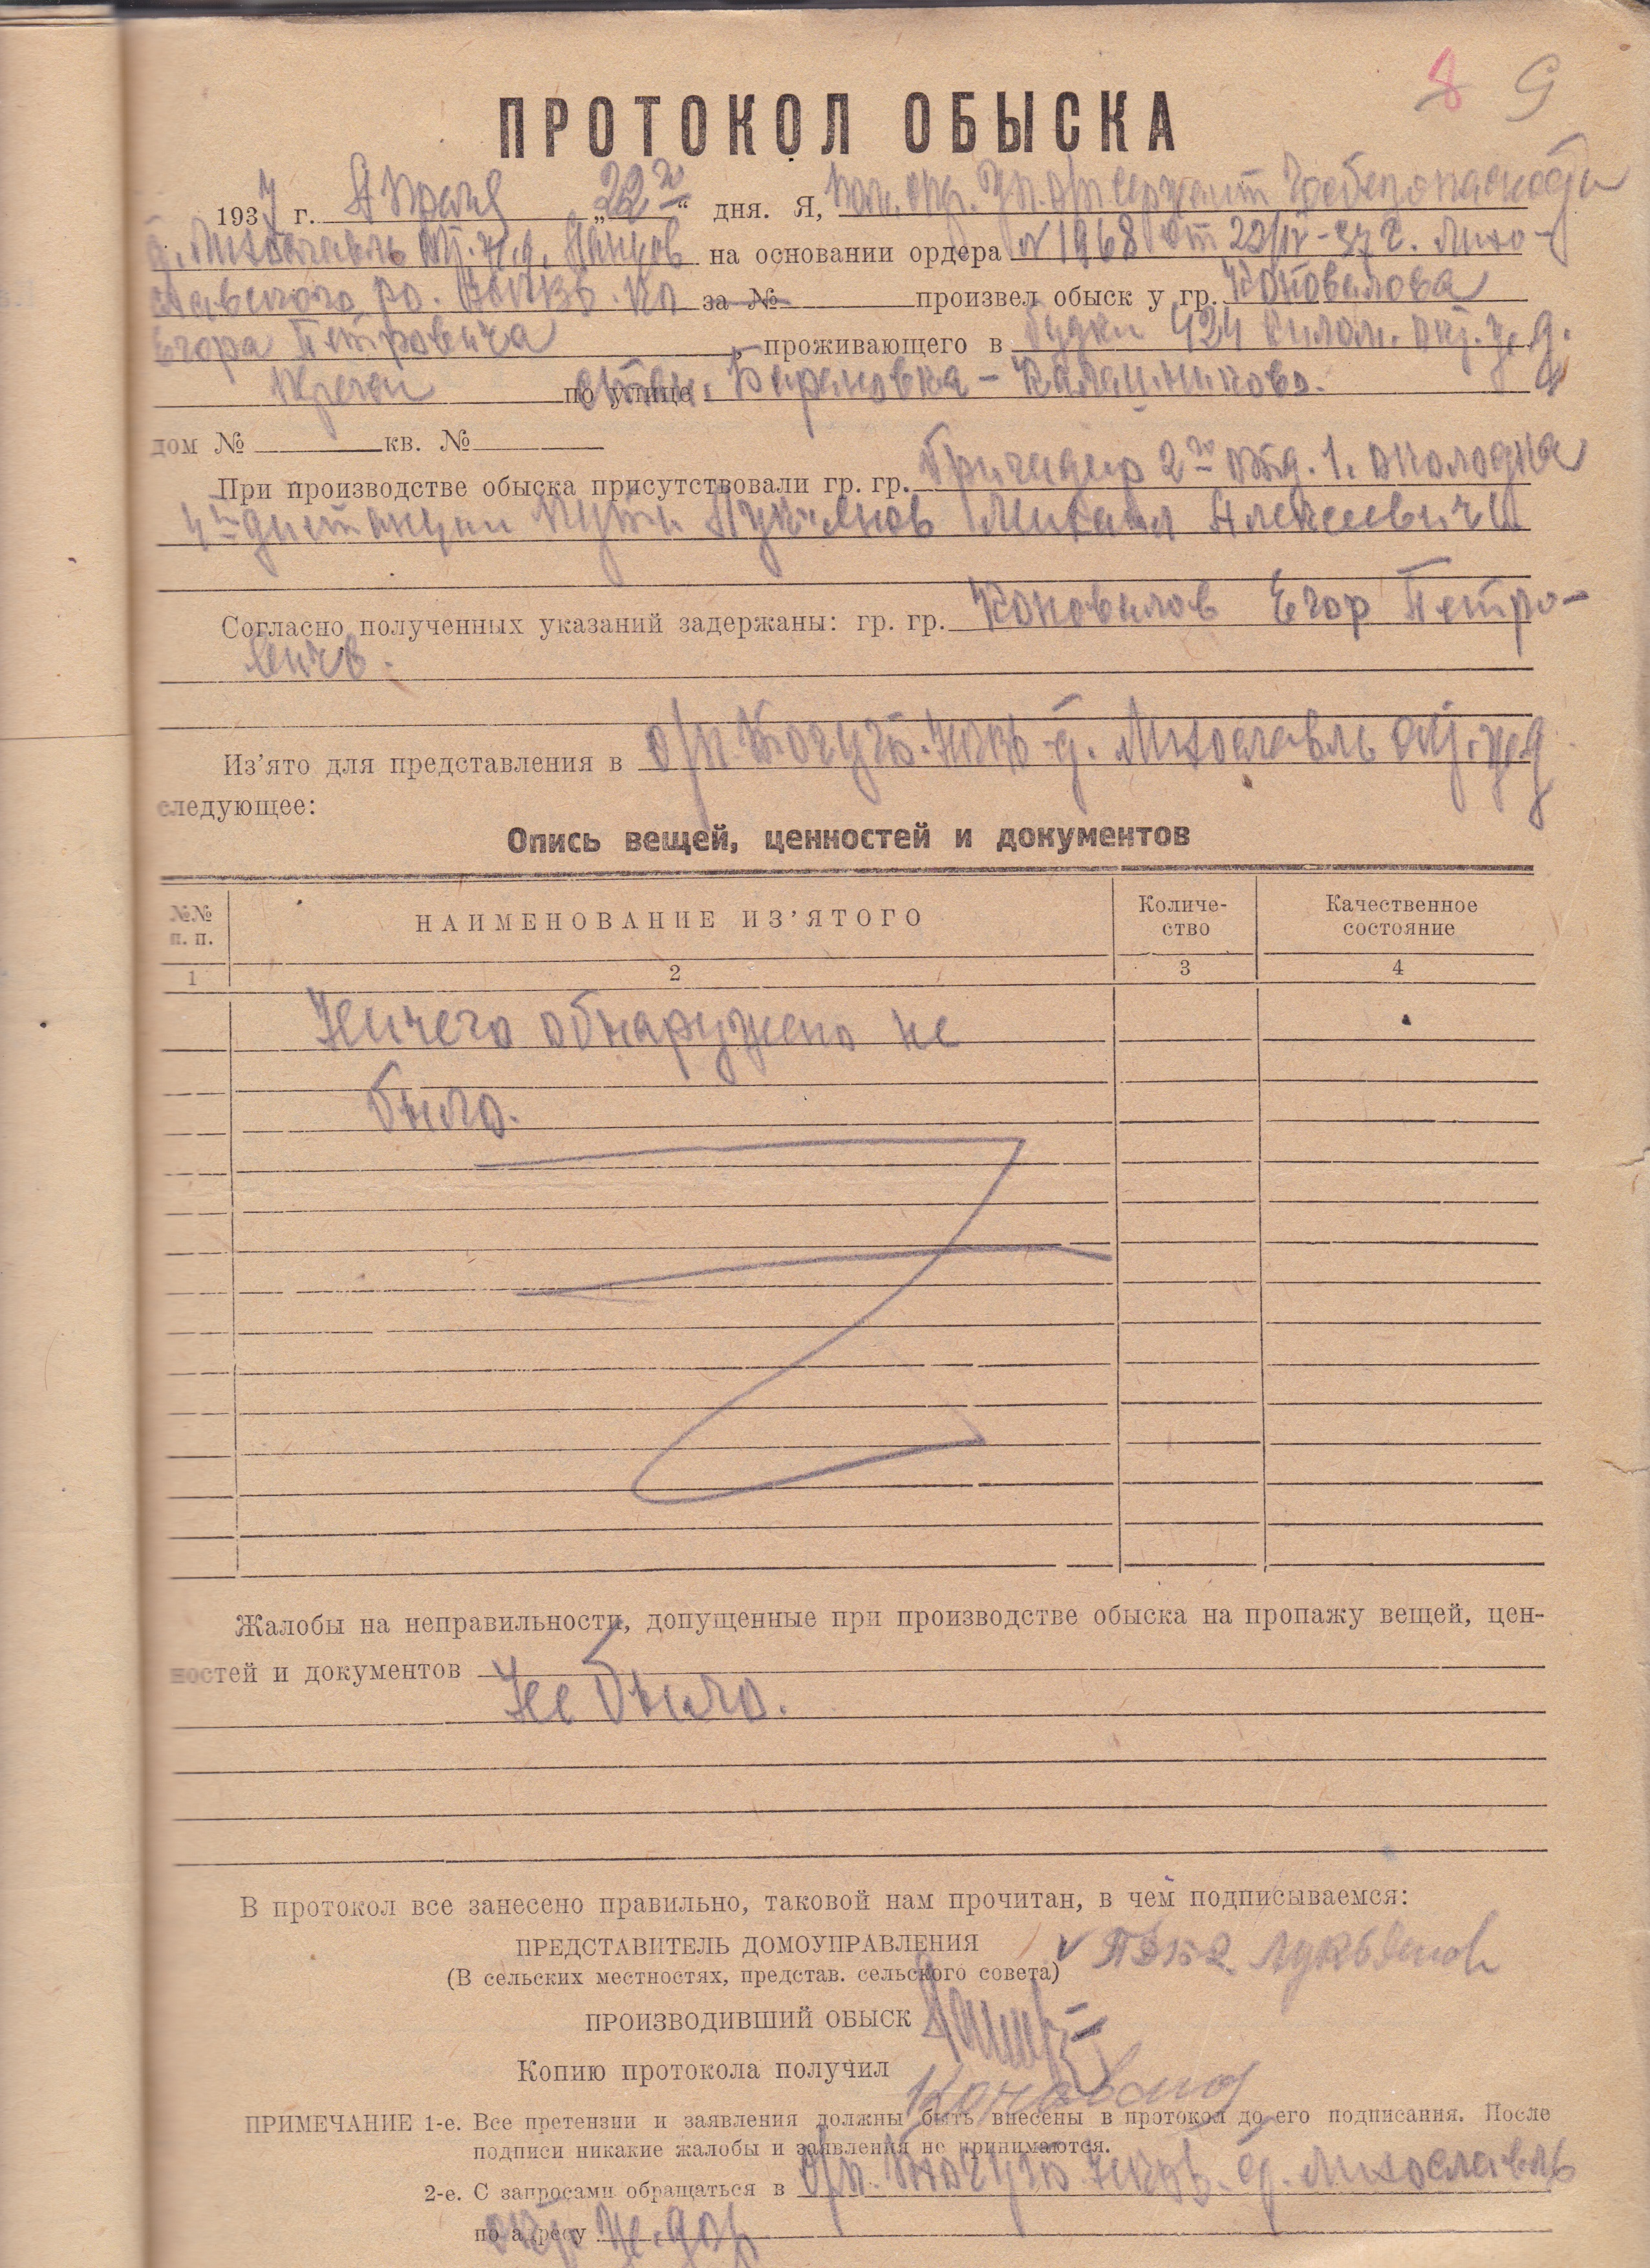 8 9
ПРОТОКОЛ ОБЫСКА
1937 г. Апреля „22го“ дня. Я, Пом. опер. Уп. сержант Госбезопасности
Лихославль Окт. ж.д. на основании ордера №1968 от 22/IV-37 г. Лихо-
славского ро. НКВД. КО за № произвел обыск у гр. Коновалова
Егора Петровича, проживающего в будки 424 килом. окт. ж.д.
по улице Барановка - Калашниково.
дом № кв. №
При производстве обыска присутствовали гр. гр. Бригадир 2го отд. 1. околодка
4й дистанции Пути Лукьянов Михаил Алексеевич
Согласно полученных указаний задержаны: гр. гр. Коновалов Егор Петро-
вичь.
Из’ято для представления в о/п НКВД Лихославль окт. ж.д
следующее:
Опись вещей, ценностей и документов
№№ п. п. НАИМЕНОВАНИЕ ИЗ’ЯТОГО Количе-ство Качественное состояние
1 2 3 4
Ничего обнаружено не
было.
Жалобы на неправильности, допущенные при производстве обыска на пропажу вещей, цен-
ностей и документов
Не было.
В протокол все занесено правильно, таковой нам прочитан, в чем подписываемся:
ПРЕДСТАВИТЕЛЬ ДОМОУПРАВЛЕНИЯ Лукьянов
(В сельских местностях, представ. сельского совета)
ПРОИЗВОДИВШИЙ ОБЫСК
Копию протокола получил
Коновалов
ПРИМЕЧАНИЕ 1-е. Все претензии и заявления должны быть внесены в протокол до его подписания. После
подписи никакие жалобы и заявления не принимаются.
2-е. С запросами обращаться в о/п. НКВД. Лихославль
по адресу окт. ж.дор